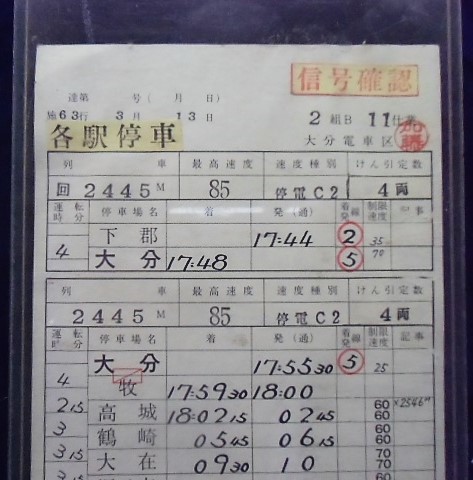 信号確認
達第 号( 月 日)
施63行 3月13日 2組B 11仕業
各駅停車 大分電車区 加藤
列車 最高速度 速度種別 けん引定数
回2445M 85 停電C2 4両
運転時分 停車場名 着 発(通) 着発線 制限速度 記事
下郡 17:44 2 35
4 大分 17:48 5 70
列車 最高速度 速度種別 けん引定数
2445M 85 停電C2 4両
運転時分 停車場名 着 発(通) 着発線 制限速度 記事
大分 17:55 30 5 25
4 牧 17:59 30 18:00
2 15 高城 18:02 15 02 45 60 60 ×2546M
3 鶴崎 05 45 06 15 60 60
3 15 大在 09 30 10 70 70
3 15